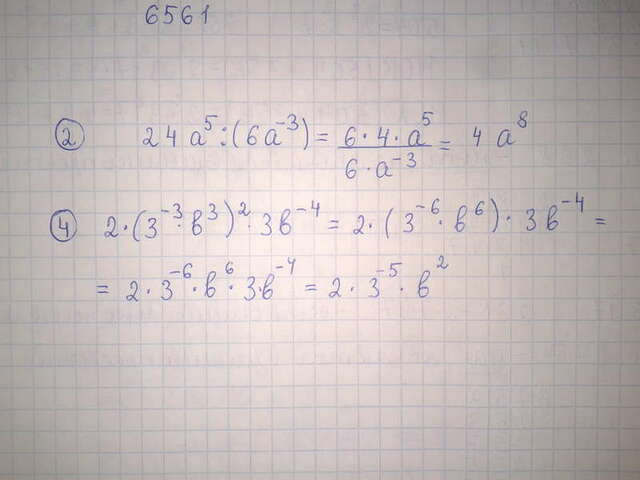 6561
② 24a⁵:(6a⁻³) = 6·4·a⁵/6·a⁻³ = 4a⁸
④ 2·(3⁻³·в³)²·3в⁻⁴ = 2·(3⁻⁶·в⁶)·3в⁻⁴ =
= 2·3⁻⁶·в⁶·3·в⁻⁴ = 2·3⁻⁵·в²